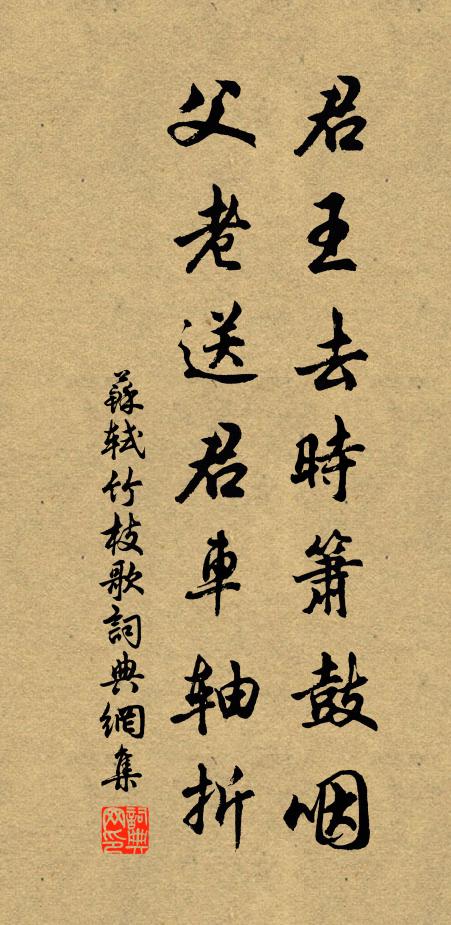 君王去時簫鼓咽
父老送君車軸折
蘇軾竹枝歌詞典網集
詞典網印